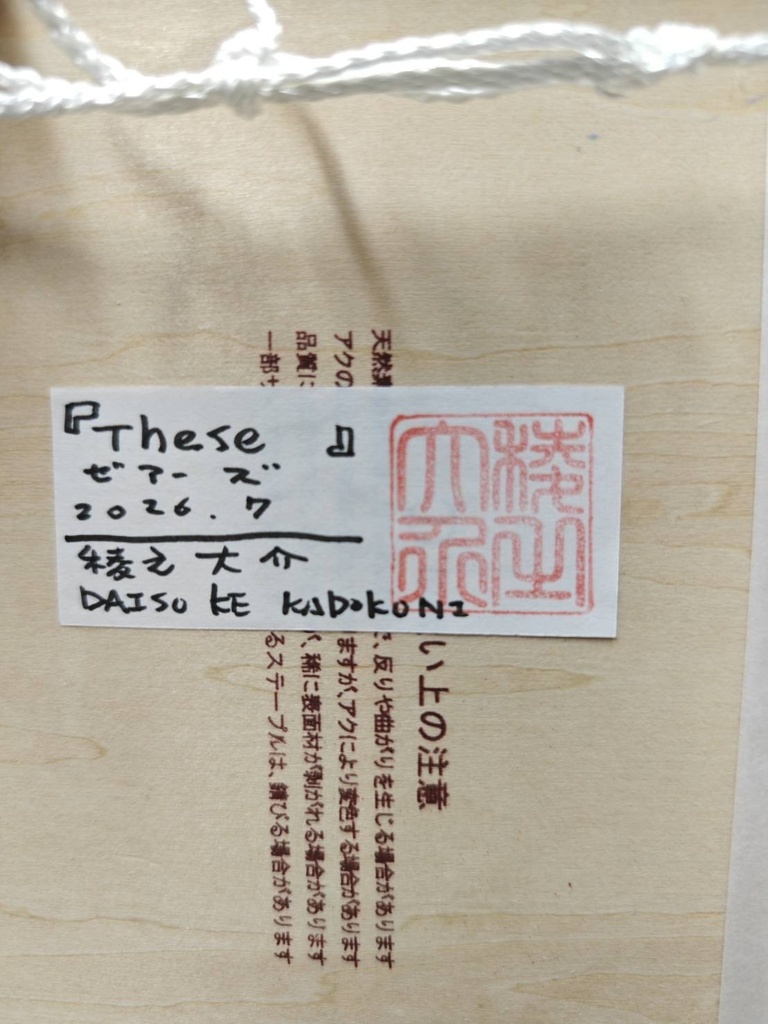 『These 』
ゼアーズ
2026.7
稜之 大介
DAISUKE KADOKUNI
天然
アクの
品質に
一部
い上の注意
、反りや曲がりを生じる場合があります
ますが、アクにより変色する場合があります
、稀に表面材が剥がれる場合があります
るステープルは、錆びる場合があります